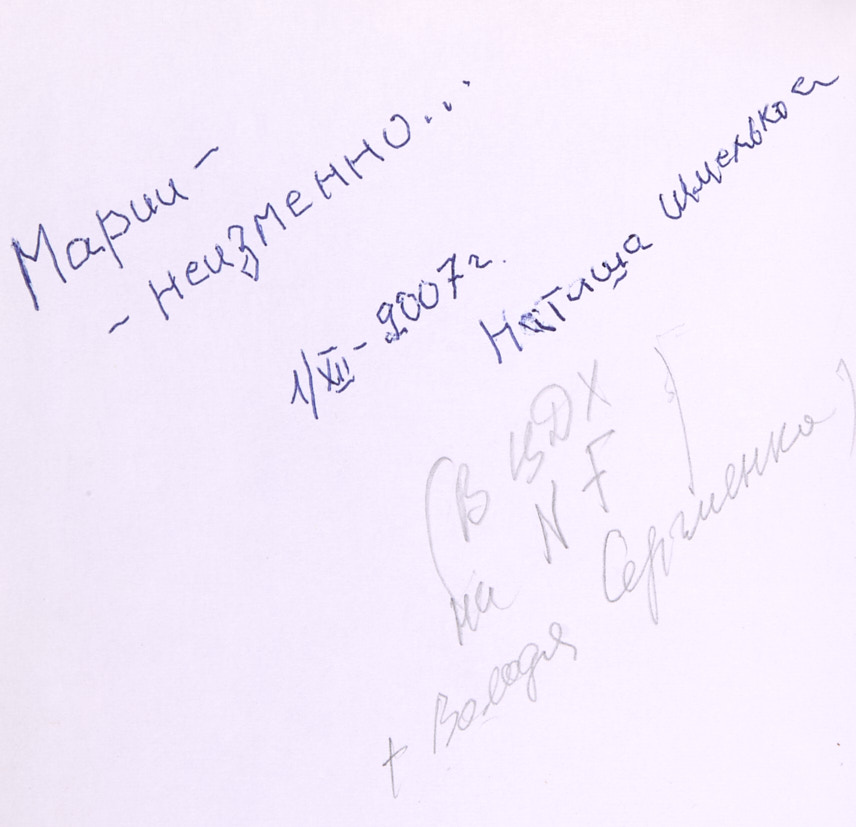 Марии –
– неизменно...
1/XII – 2007 г.
Наташа
(В ЦДХ
на NF)
+ Володя Сергиенко)